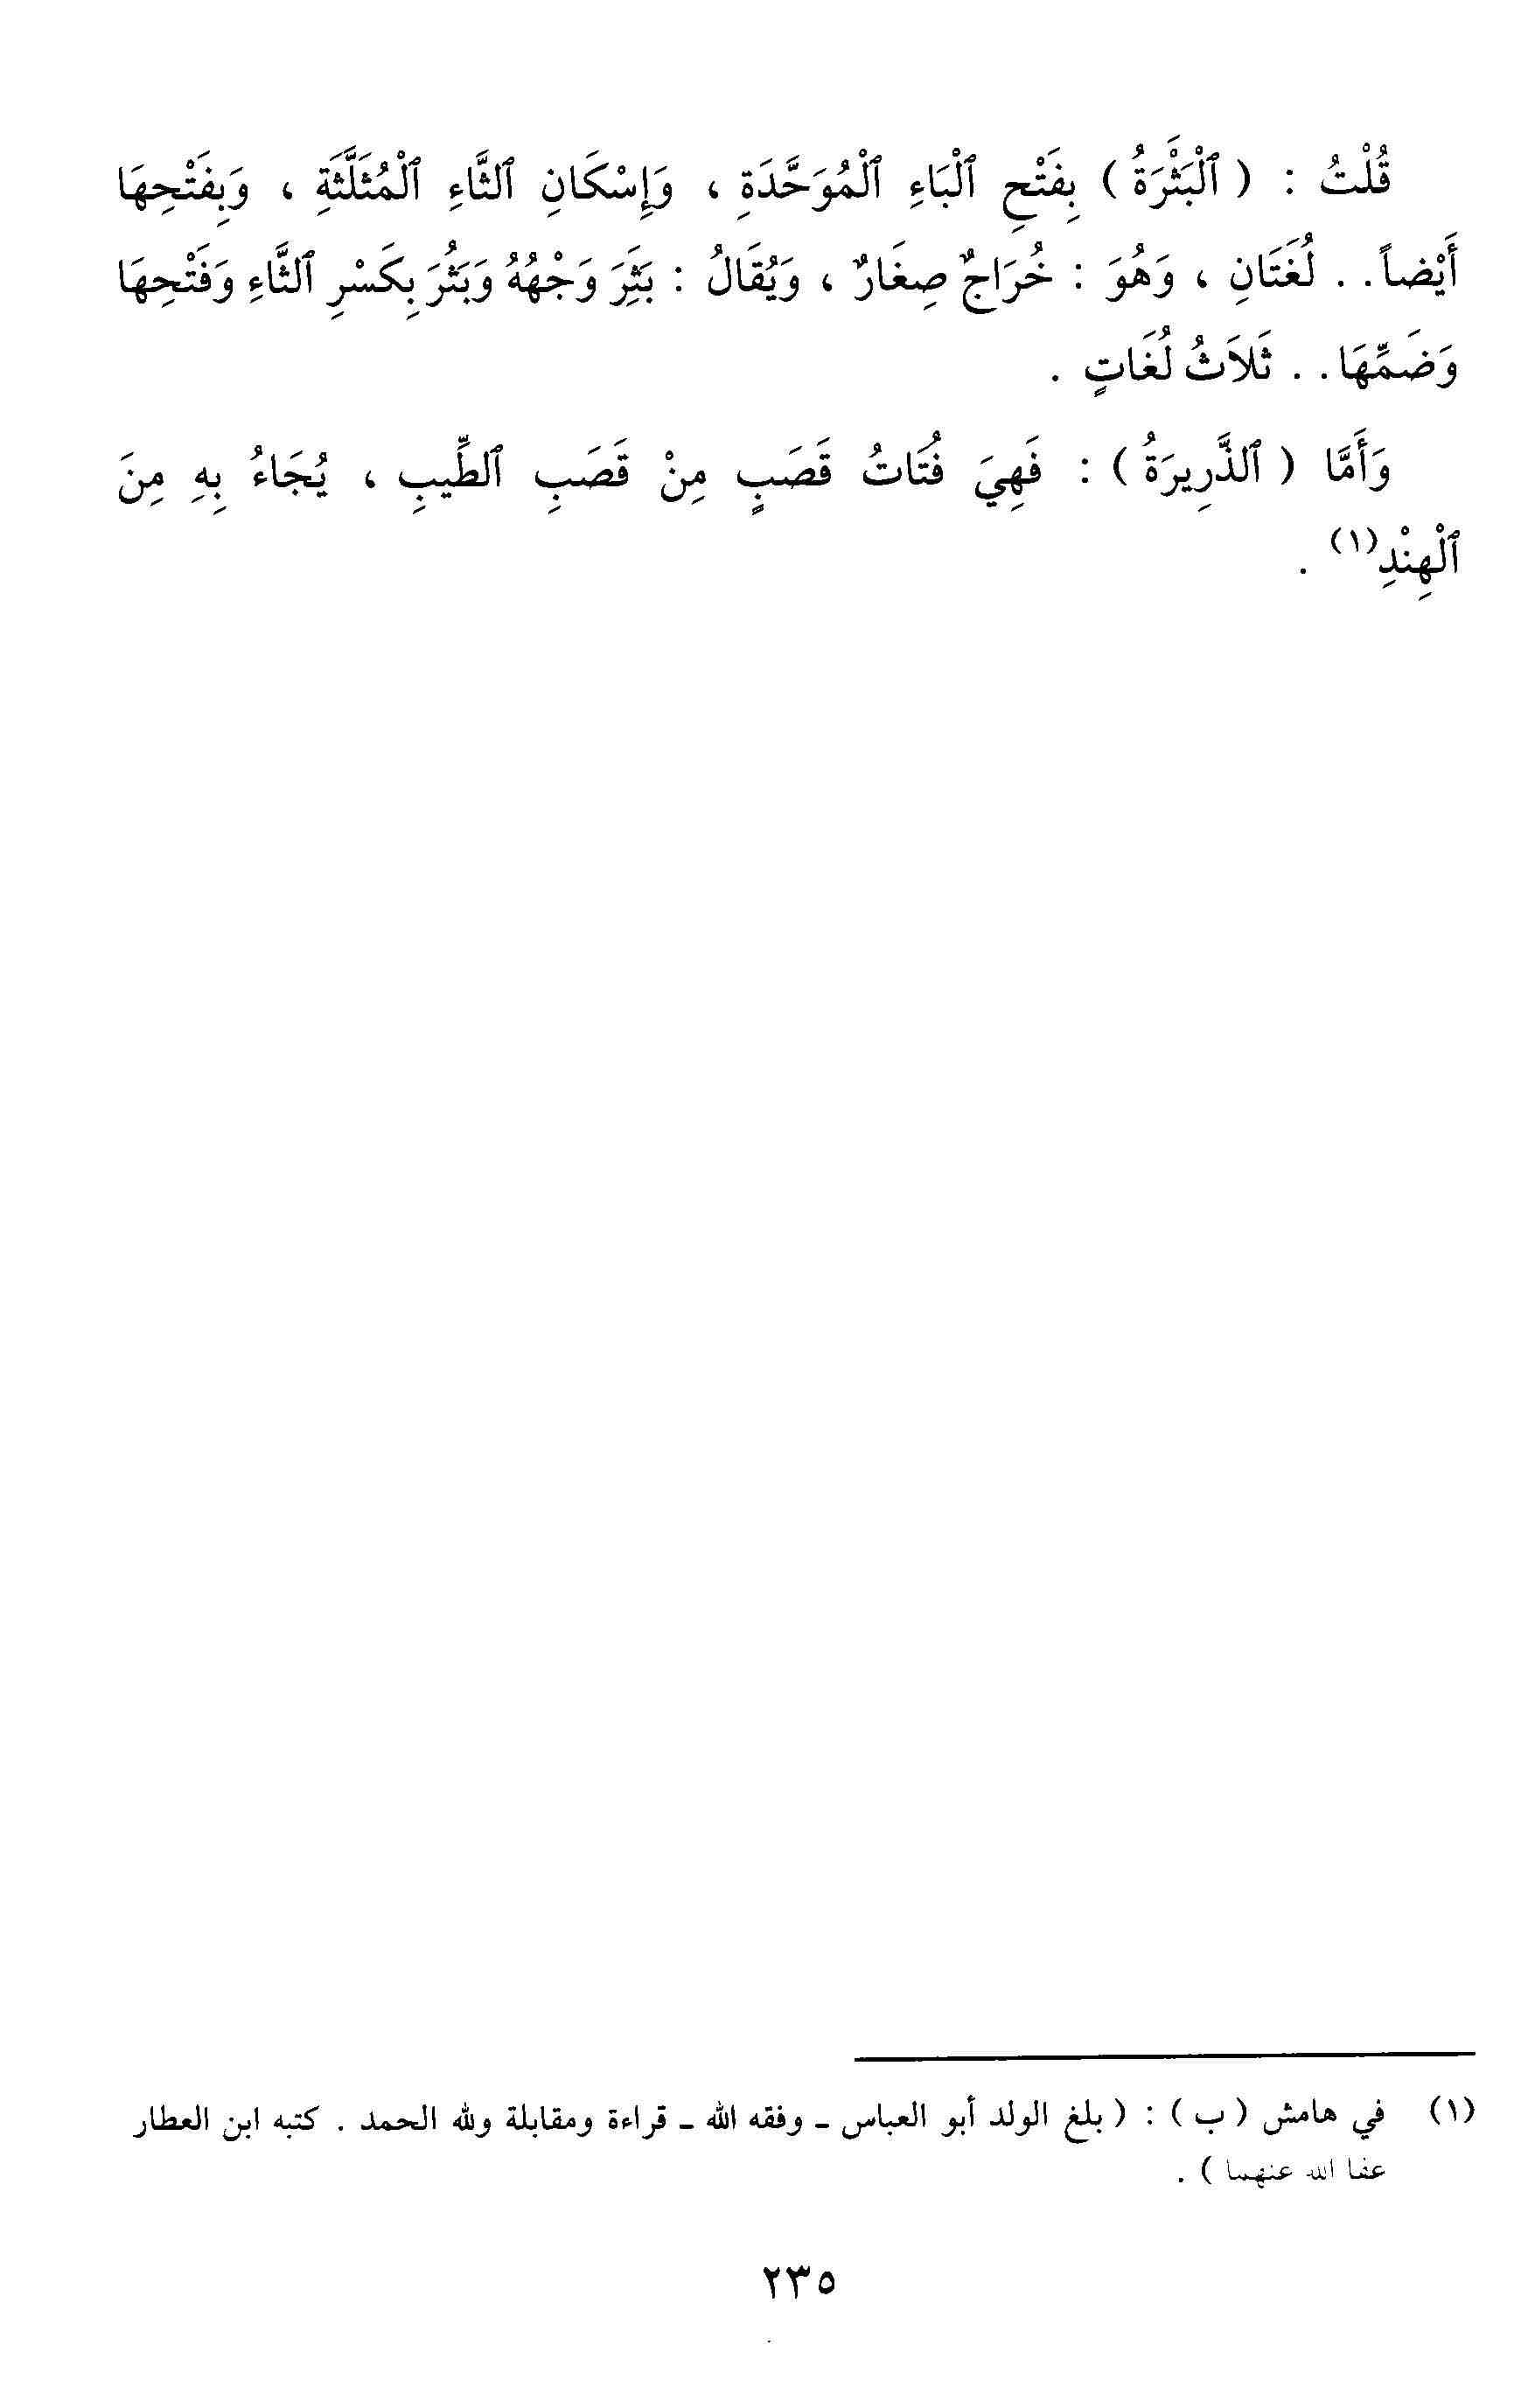 قُلْتُ : ( ٱلْبَثْرَةُ ) بِفَتْحِ ٱلْبَاءِ ٱلْمُوَحَّدَةِ ، وَإِسْكَانِ ٱلثَّاءِ ٱلْمُثَلَّثَةِ ، وَبِفَتْحِهَا
أَيْضاً . . لُغَتَانِ ، وَهُوَ : خُرَاجٌ صِغَارٌ ، وَيُقَالُ : بَثِرَ وَجْهُهُ وَبَثُرَ بِكَسْرِ ٱلثَّاءِ وَفَتْحِهَا
وَضَمِّهَا . . ثَلاَثُ لُغَاتٍ .
وَأَمَّا ( ٱلذَّرِيرَةُ ) : فَهِيَ فُتَاتُ قَصَبٍ مِنْ قَصَبِ ٱلطِّيبِ ، يُجَاءُ بِهِ مِنَ
ٱلْهِنْدِ(١) .
(١) في هامش ( ب ) : ( بلغ الولد أبو العباس ـ وفقه الله ـ قراءة ومقابلة ولله الحمد . كتبه ابن العطار
عفا الله عنهما ) .
٢٣٥